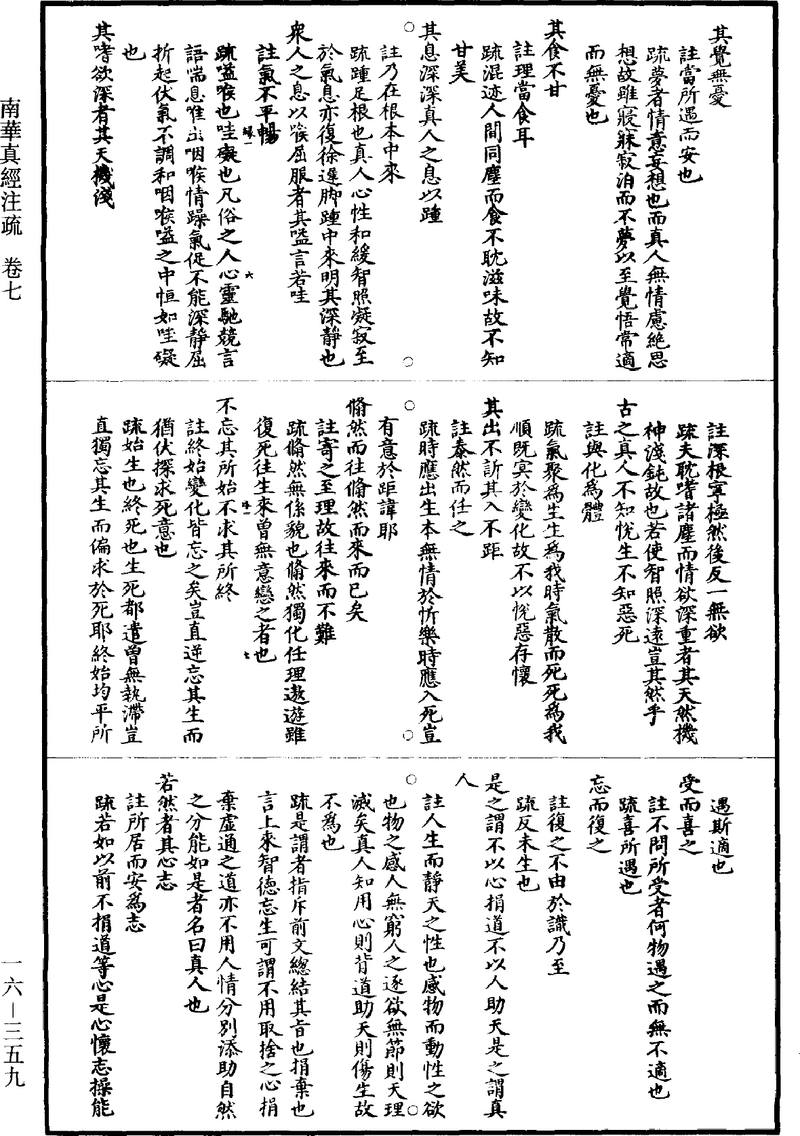 其覺無憂
註當所遇而安也
疏夢者情意妄想也而真人無情慮絕思
想故雖寢寐寂泊而不夢以至覺悟常適
而無憂也
其食不甘
註理當食耳
疏混迹人間同塵而食不耽滋味故不知
甘美
其息深深真人之息以踵
註乃在根本中來
疏踵足根也真人心性和緩智照凝寂至
於氣息亦復徐遲脚踵中來明其深靜也
衆人之息以喉屈服者其嗌言若哇
註氣不平暢
疏嗌喉也哇礙也凡俗之人心靈馳競言
語喘息唯出咽喉情躁氣促不能深靜屈
折起伏氣不調和咽喉嗌之中恒如哇礙
也
其嗜欲深者其天機淺
註深根寧極然後反一無欲
疏夫耽嗜諸塵而情欲深重者其天然機
神淺鈍故也若使智照深遠豈其然乎
古之真人不知悅生不知惡死
註與化為體
疏氣聚為生生為我時氣散而死死為我
順既冥於變化故不以悅惡存懷
其出不訢其入不距
註泰然而任之
疏時應出生本無情於忻樂時應入死豈
有意於距諱耶
翛然而往翛然而來而已矣
註寄之至理故往來而不難
疏翛然無係貌也翛然獨化任理遨遊雖
復死往生來曾無意戀之者也
不忘其所始不求其所終
註終始變化皆忘之矣豈直逆忘其生而
猶伏探求死意也
疏始生也終死也生死都遣曾無執滯豈
直獨忘其生而偏求於死耶終始均平所
遇斯適也
受而喜之
註不問所受者何物遇之而無不適也
疏喜所遇也
忘而復之
註復之不由於識乃至
疏反未生也
是之謂不以心捐道不以人助天是之謂真
人
註人生而靜天之性也感物而動性之欲
也物之感人無窮人之逐欲無節則天理
滅矣真人知用心則背道助天則傷生故
不為也
疏是謂者指斥前文總結其旨也捐棄也
言上來智德忘生可謂不用取捨之心捐
棄虛通之道亦不用人情分別添助自然
之分能如是者名曰真人也
若然者其心志
註所居而安為志
疏若如以前不捐道等心是心懷志操能
南華真經注疏 卷七
一六－三五九